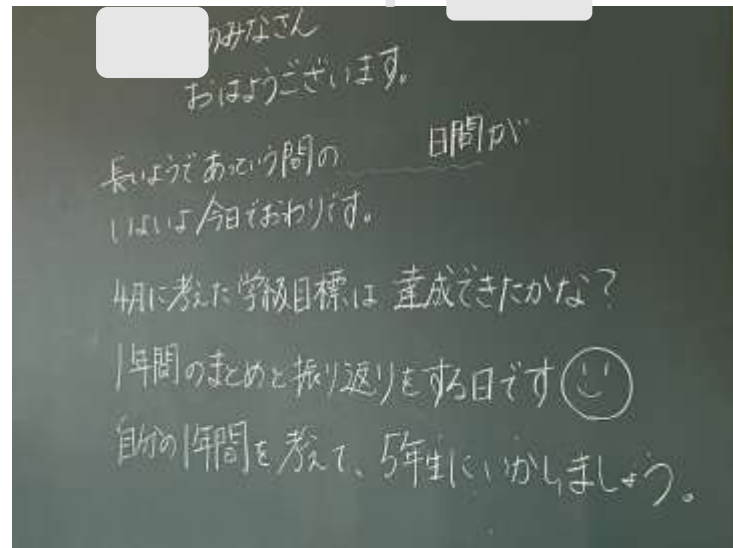 のみなさん
おはようございます。
長いようであっという間の 日間が
いよいよ今日でおわりです。
4月に考えた学級目標は達成できたかな？
1年間のまとめと振り返りをする日です
自分の1年間を考えて、5年生にいかしましょう。